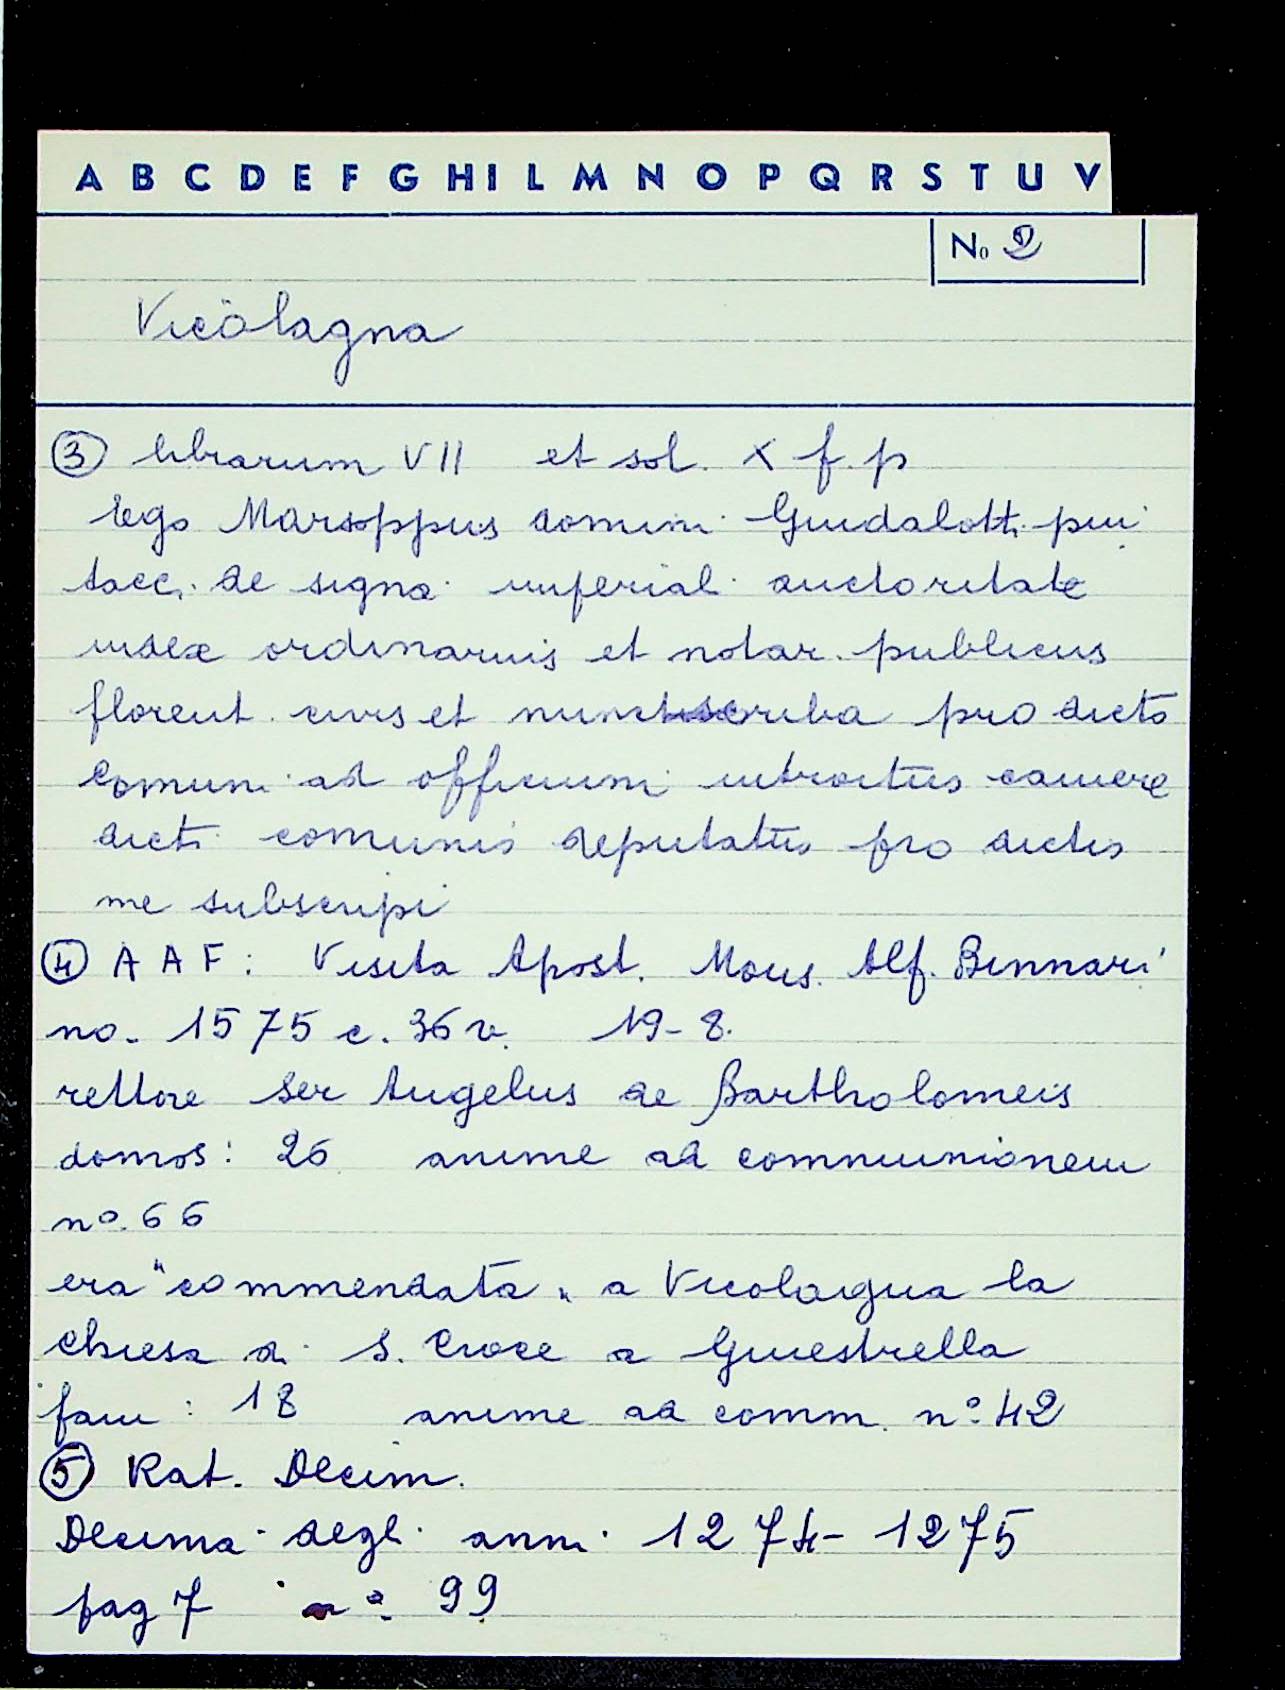 A B C D E F G H I L M N O P Q R S T U V
No 2
Vicolagna
③ librarum VII et sol. X f. p
Ego Marsoppus domini Guidalotti pui
tacc. de signa imperiali auctoritate
iudex ordinarius et notar. publicus
florent. civis et nunc scriba pro dicto
comuni ad officium introitus camere
dicti comunis deputatus pro dictis
me subscripi
④ A A F: Visita Apost. Mons. Alf. Binnari
no. 1575 c. 36 v. 19-8.
rettore Ser Angelus de Bartholomeis
domos: 26 anime ad communionem
nº. 66
era "commendata" a Vicolagna la
chiesa di S. Croce a Guiestrella
fam: 18 anime ad comm. nº. 42
⑤ Rat. Decim.
Decima degli anni 1274-1275
pag 7 nº. 99